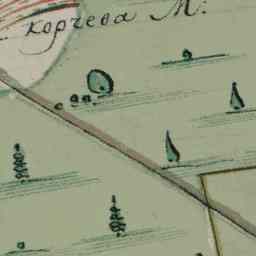 корчева М: